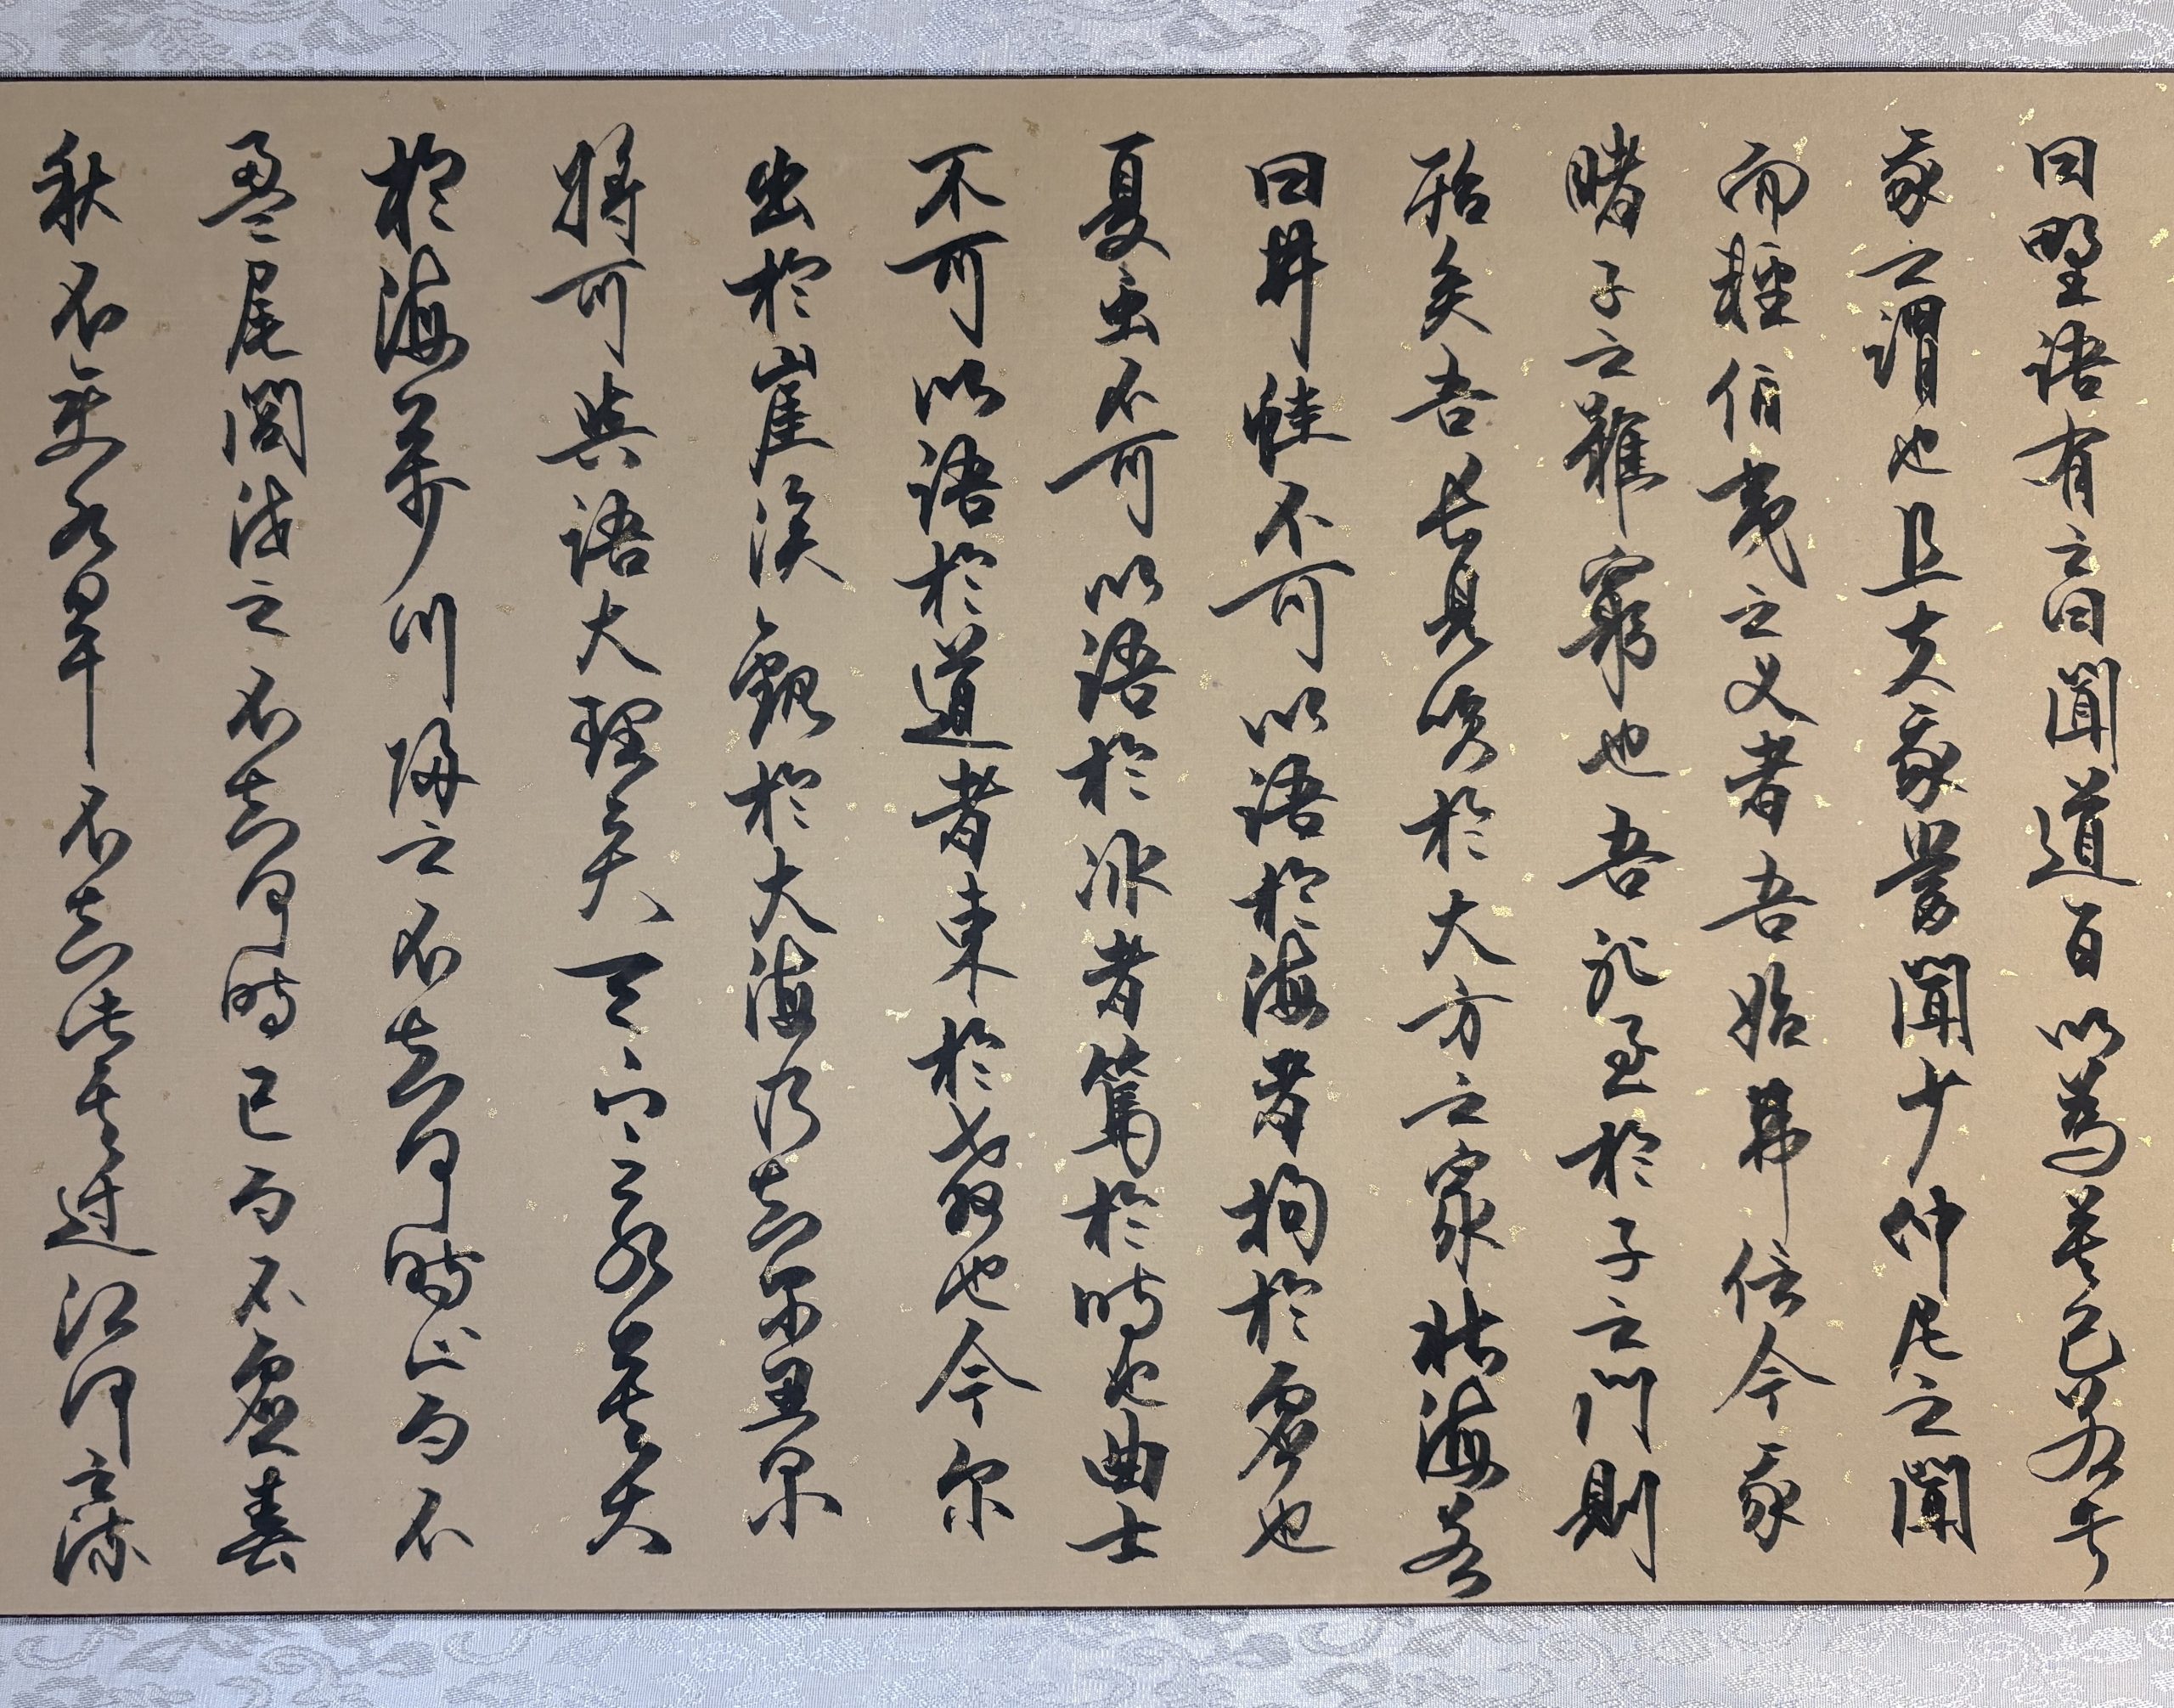 曰野語有之曰聞道百以為莫己若者
我之謂也且夫我嘗聞少仲尼之聞
而輕伯夷之义者吾始弗信今我
睹子之難窮也吾非至於子之門則
殆矣吾长見笑於大方之家北海若
曰井蛙不可以語於海者拘於虛也
夏虫不可以語於冰者篤於時也曲士
不可以語於道者束於教也今尔
出於崖涘觀於大海乃知尔丑尔
將可與語大理矣天下之水莫大
於海萬川歸之不知何時止而不
盈尾閭泄之不知何時已而不虛春
秋不变水旱不知此其过江河之流